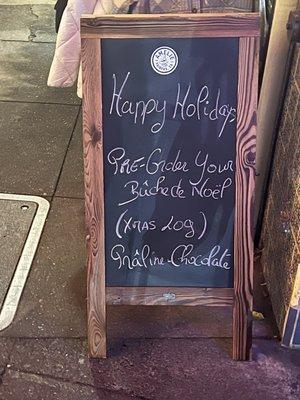 Happy Holidays
Pre-Order Your
Bûche de Noël
(Xmas Log)
Prâline-Chocolate